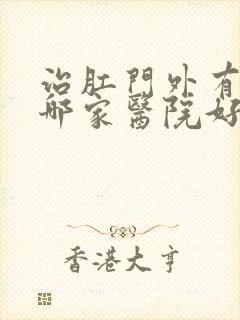 治肛門外有
哪家醫院好
香港大亨